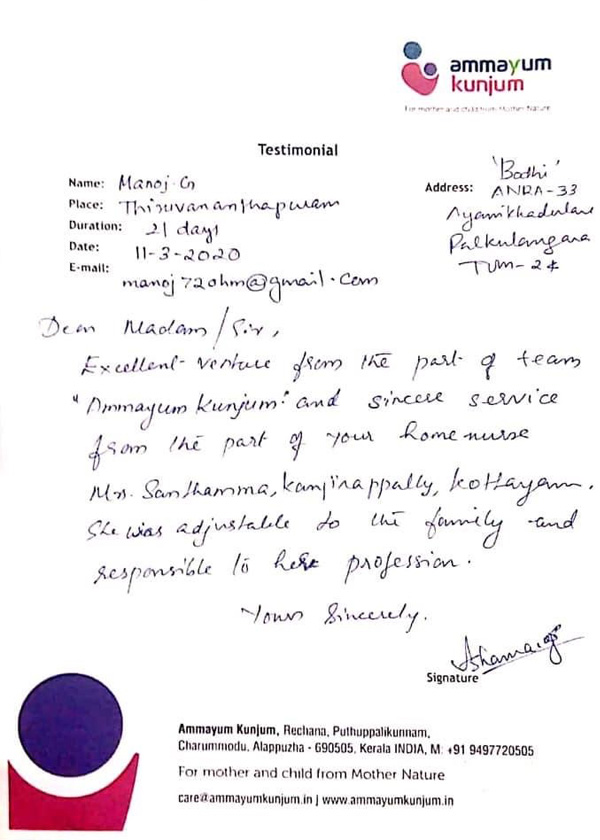 ammayum
kunjum
For mother and child from Mother Nature
Testimonial
Name: Manoj. G
Place: Thiruvananthapuram
Duration: 21 days
Date: 11-3-2020
E-mail: manoj72ohm@gmail.com
'Bodhi'
Address: ANRA-33
Palkulangara
TVM-24
Dear Madam/Sir,
Excellent venture from the part of team
"Ammayum Kunjum" and sincere service
from the part of your home nurse
Mrs. Santhamma, Kanjirappally, Kottayam.
She was adjustable to the family and
responsible to her profession.
Yours Sincerely.
Signature
Ammayum Kunjum, Rechana, Puthuppalikunnam,
Charummodu, Alappuzha - 690505, Kerala INDIA, M: +91 9497720505
For mother and child from Mother Nature
care@ammayumkunjum.in | www.ammayumkunjum.in